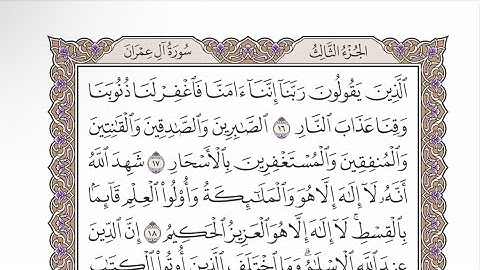 سُورَةُ آلِ عِمْرَان
الجُزْءُ الثَّالِثُ
ٱلَّذِينَ يَقُولُونَ رَبَّنَآ إِنَّنَآ ءَامَنَّا فَٱغْفِرْ لَنَا ذُنُوبَنَا
وَقِنَا عَذَابَ ٱلنَّارِ ١٦ ٱلصَّٰبِرِينَ وَٱلصَّٰدِقِينَ وَٱلْقَٰنِتِينَ
وَٱلْمُنفِقِينَ وَٱلْمُسْتَغْفِرِينَ بِٱلْأَسْحَارِ ١٧ شَهِدَ ٱللَّهُ
أَنَّهُۥ لَآ إِلَٰهَ إِلَّا هُوَ وَٱلْمَلَٰٓئِكَةُ وَأُو۟لُوا۟ ٱلْعِلْمِ قَآئِمًۢا
بِٱلْقِسْطِ ۚ لَآ إِلَٰهَ إِلَّا هُوَ ٱلْعَزِيزُ ٱلْحَكِيمُ ١٨ إِنَّ ٱلدِّينَ
عِندَ ٱللَّهِ ٱلْإِسْلَٰمُ ۗ وَمَا ٱخْتَلَفَ ٱلَّذِينَ أُوتُوا۟ ٱلْكِتَٰبَ